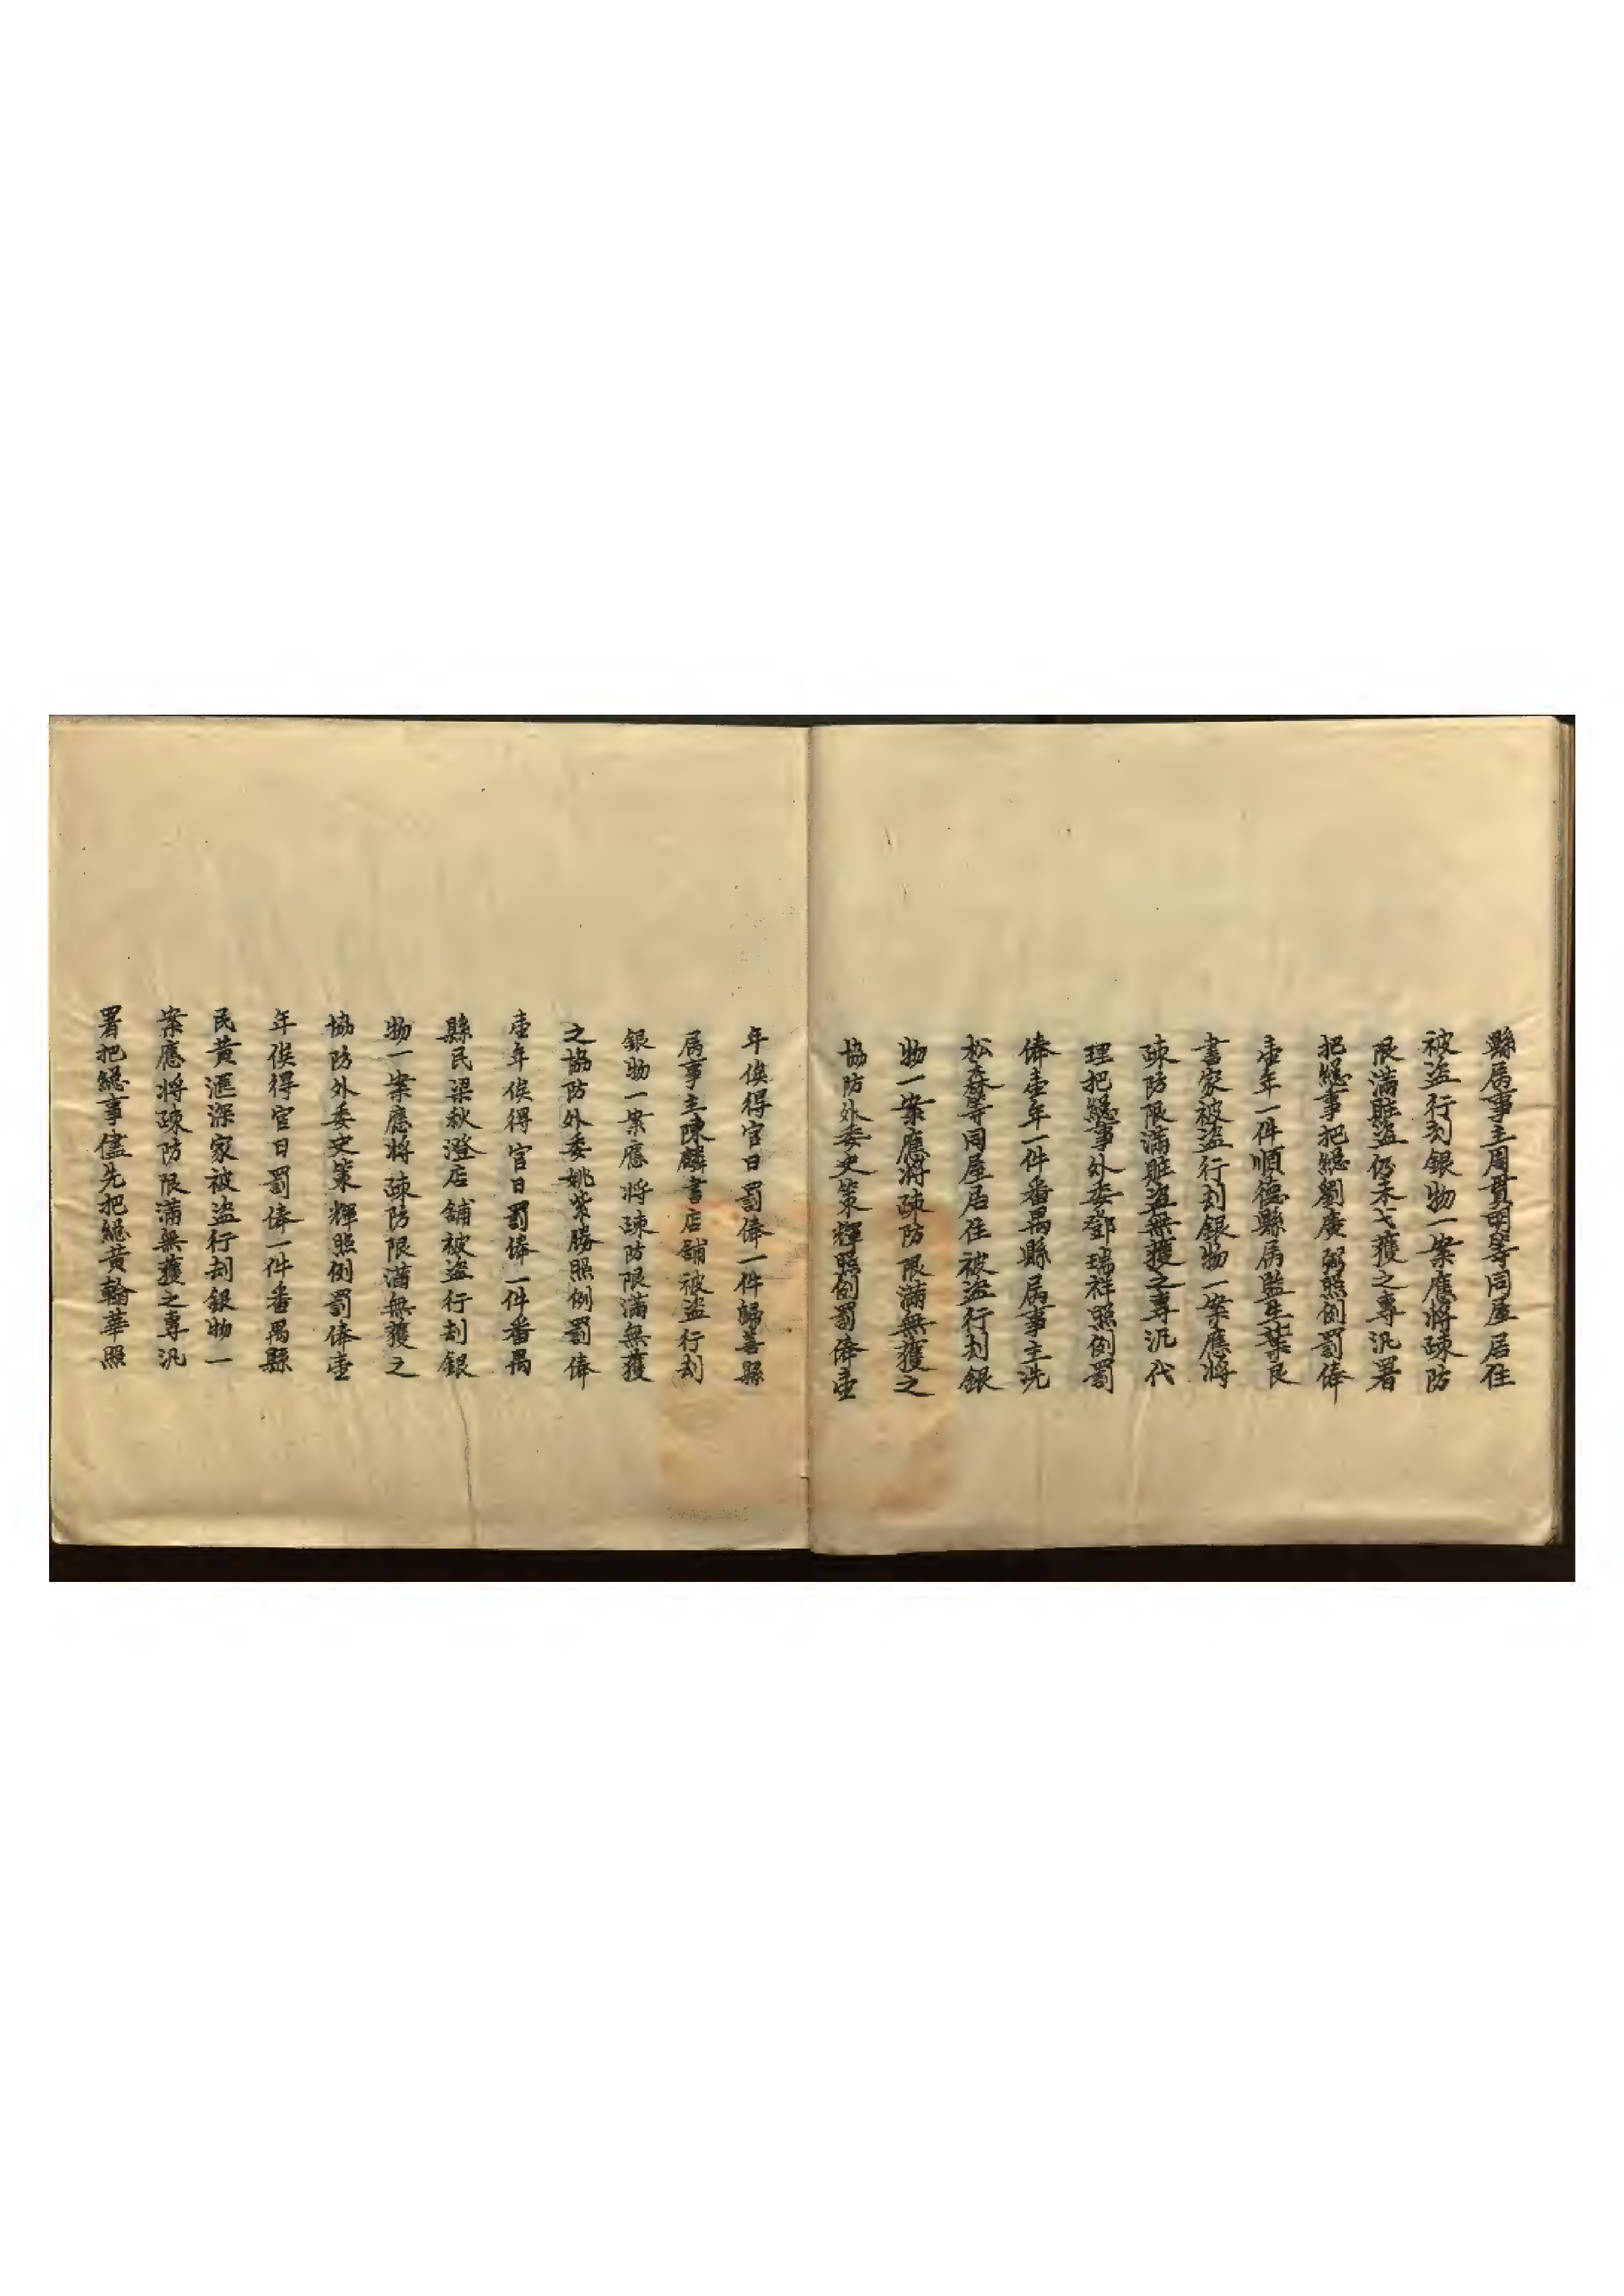 縣属事主周貫明等同屋居住
被盜行刼銀物一案應將疎防
限滿賍盜仍未弋獲之專汛署
把總事把總劉廣弼照例罰俸
壹年一件順德縣属監生葉良
書家被盜行刼銀物一案應將
疎防限滿賍盜無獲之專汛代
理把總事外委鄧瑞祥照例罰
俸壹年一件番禺縣属事主冼
松森等同屋居住被盜行刼銀
物一案應將疎防限滿無獲之
協防外委史策輝照例罰俸壹
年俟得官日罰俸一件歸善縣
属事主陳麟書店舖被盜行刼
銀物一案應將疎防限滿無獲
之協防外委姚紫勝照例罰俸
壹年俟得官日罰俸一件番禺
縣民梁秋澄店舖被盜行刼銀
物一案應將疎防限滿無獲之
協防外委史策輝照例罰俸壹
年俟得官日罰俸一件番禺縣
民黄滙深家被盜行刼銀物一
案應將疎防限滿無獲之專汛
署把總事儘先把總黄翰華照